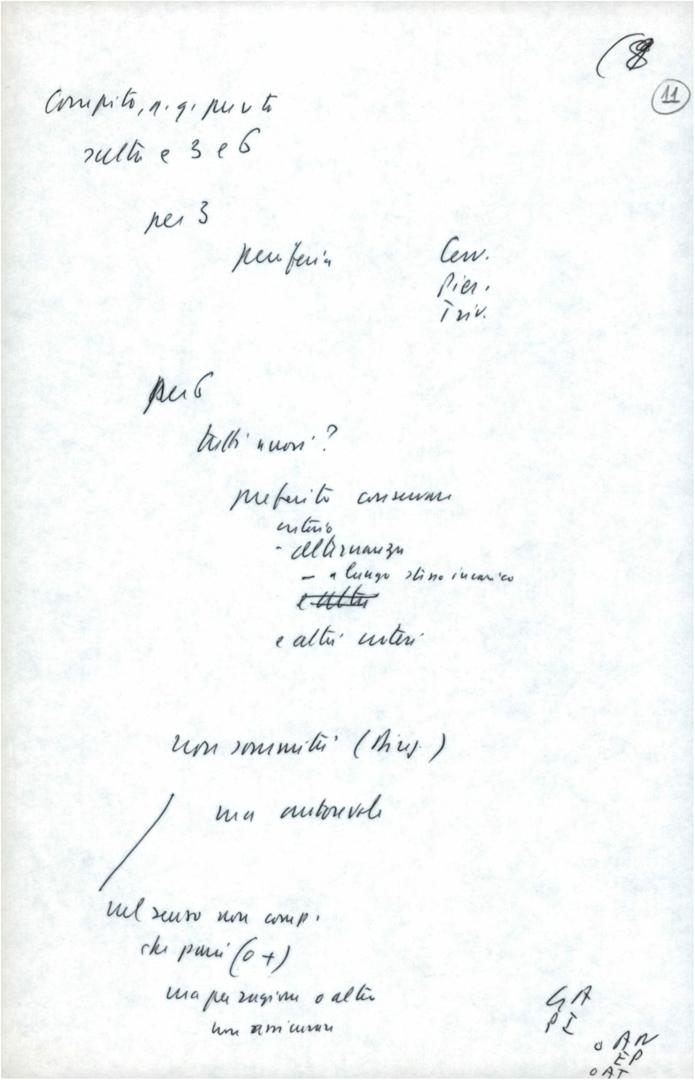 (8
11
Compito, n. q. punto
scelta e 3 e 6
per 3
periferia Cerv.
Pier.
Triv.
per 6
tutti nuovi?
preferito conservare
criterio
- alternanza
- a lungo stesso incarico
e altri
e altri criteri
non sommità (Ring.)
ma autorevole
nel senso non comp.
che parni (o +)
ma per ragioni o altro
non assicurare
G A
P I
o AN
EP
o AT